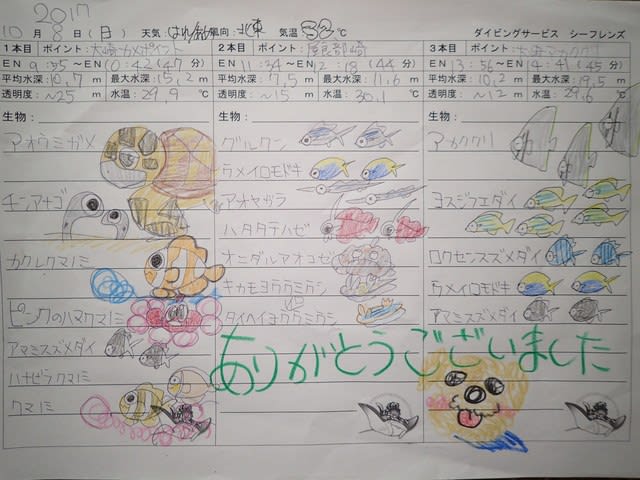 2017
10月 8日(日) 天気:はれ 風向:北東 気温 33℃ ダイビングサービス シーフレンズ
1本目 ポイント:大崎カメポイント
EN 9:55〜EN 10:42 (47分)
平均水深:10.7m 最大水深:15.2m
透明度:〜25m 水温:29.9℃
生物:
アオウミガメ
チンアナゴ
カクレクマノミ
ピンクのハマクマノミ
アマミスズメダイ
ハナビラクマノミ
クマノミ
2本目 ポイント:屋良部崎
EN 11:34〜EN 12:18 (44分)
平均水深:7.5m 最大水深:11.6m
透明度:〜15m 水温:30.1℃
生物:
グルクン
ウメイロモドキ
アオヤガラ
ハタタテハゼ
オニダルマオコゼ
キカモヨウウミウシ
タイヘイヨウウミウシ
3本目 ポイント:大崎アカククリ
EN 13:56〜EN 14:41 (45分)
平均水深:10.2m 最大水深:19.5m
透明度:〜12m 水温:29.6℃
生物:
アカククリ
ヨスジフエダイ
ロクセンスズメダイ
ウメイロモドキ
アマミスズメダイ
ありがとうございました